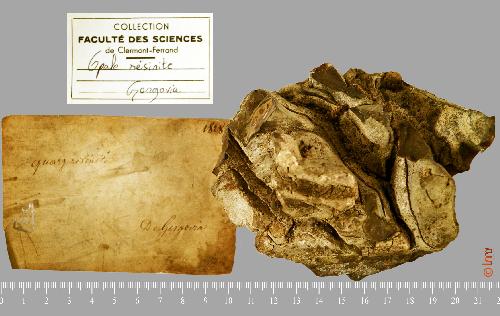 COLLECTION
FACULTÉ DES SCIENCES
de Clermont-Ferrand
Opale résinite
Gergovia
1868
quarz résinite
De Gergovia
0 1 2 3 4 5 6 7 8 9 10 11 12 13 14 15 16 17 18 19 20 21